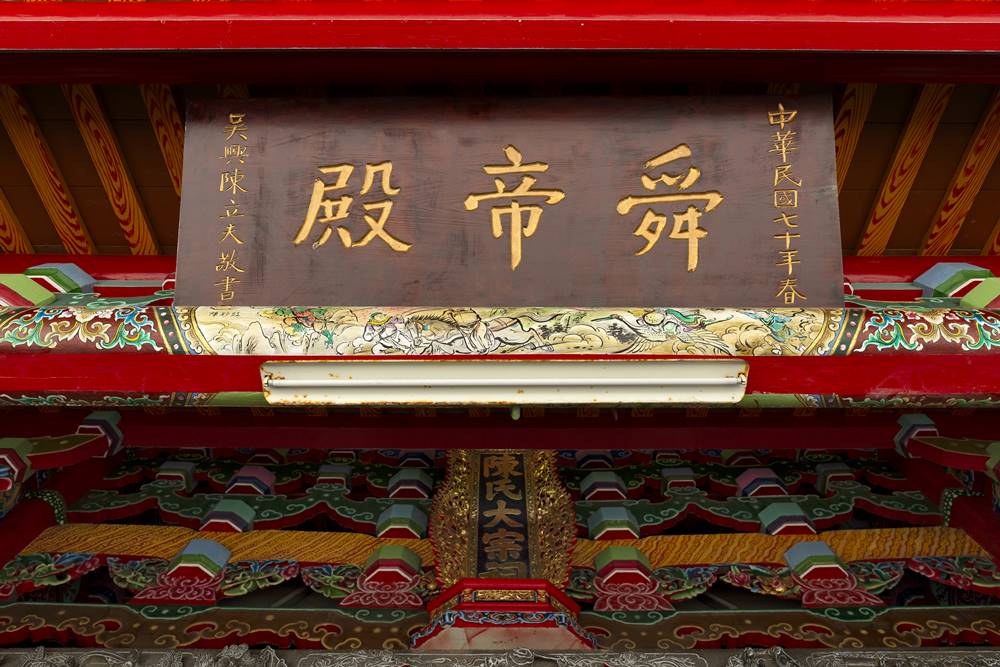 中華民國七十年春
舜帝殿
吳興陳立夫敬書
陳氏大宗